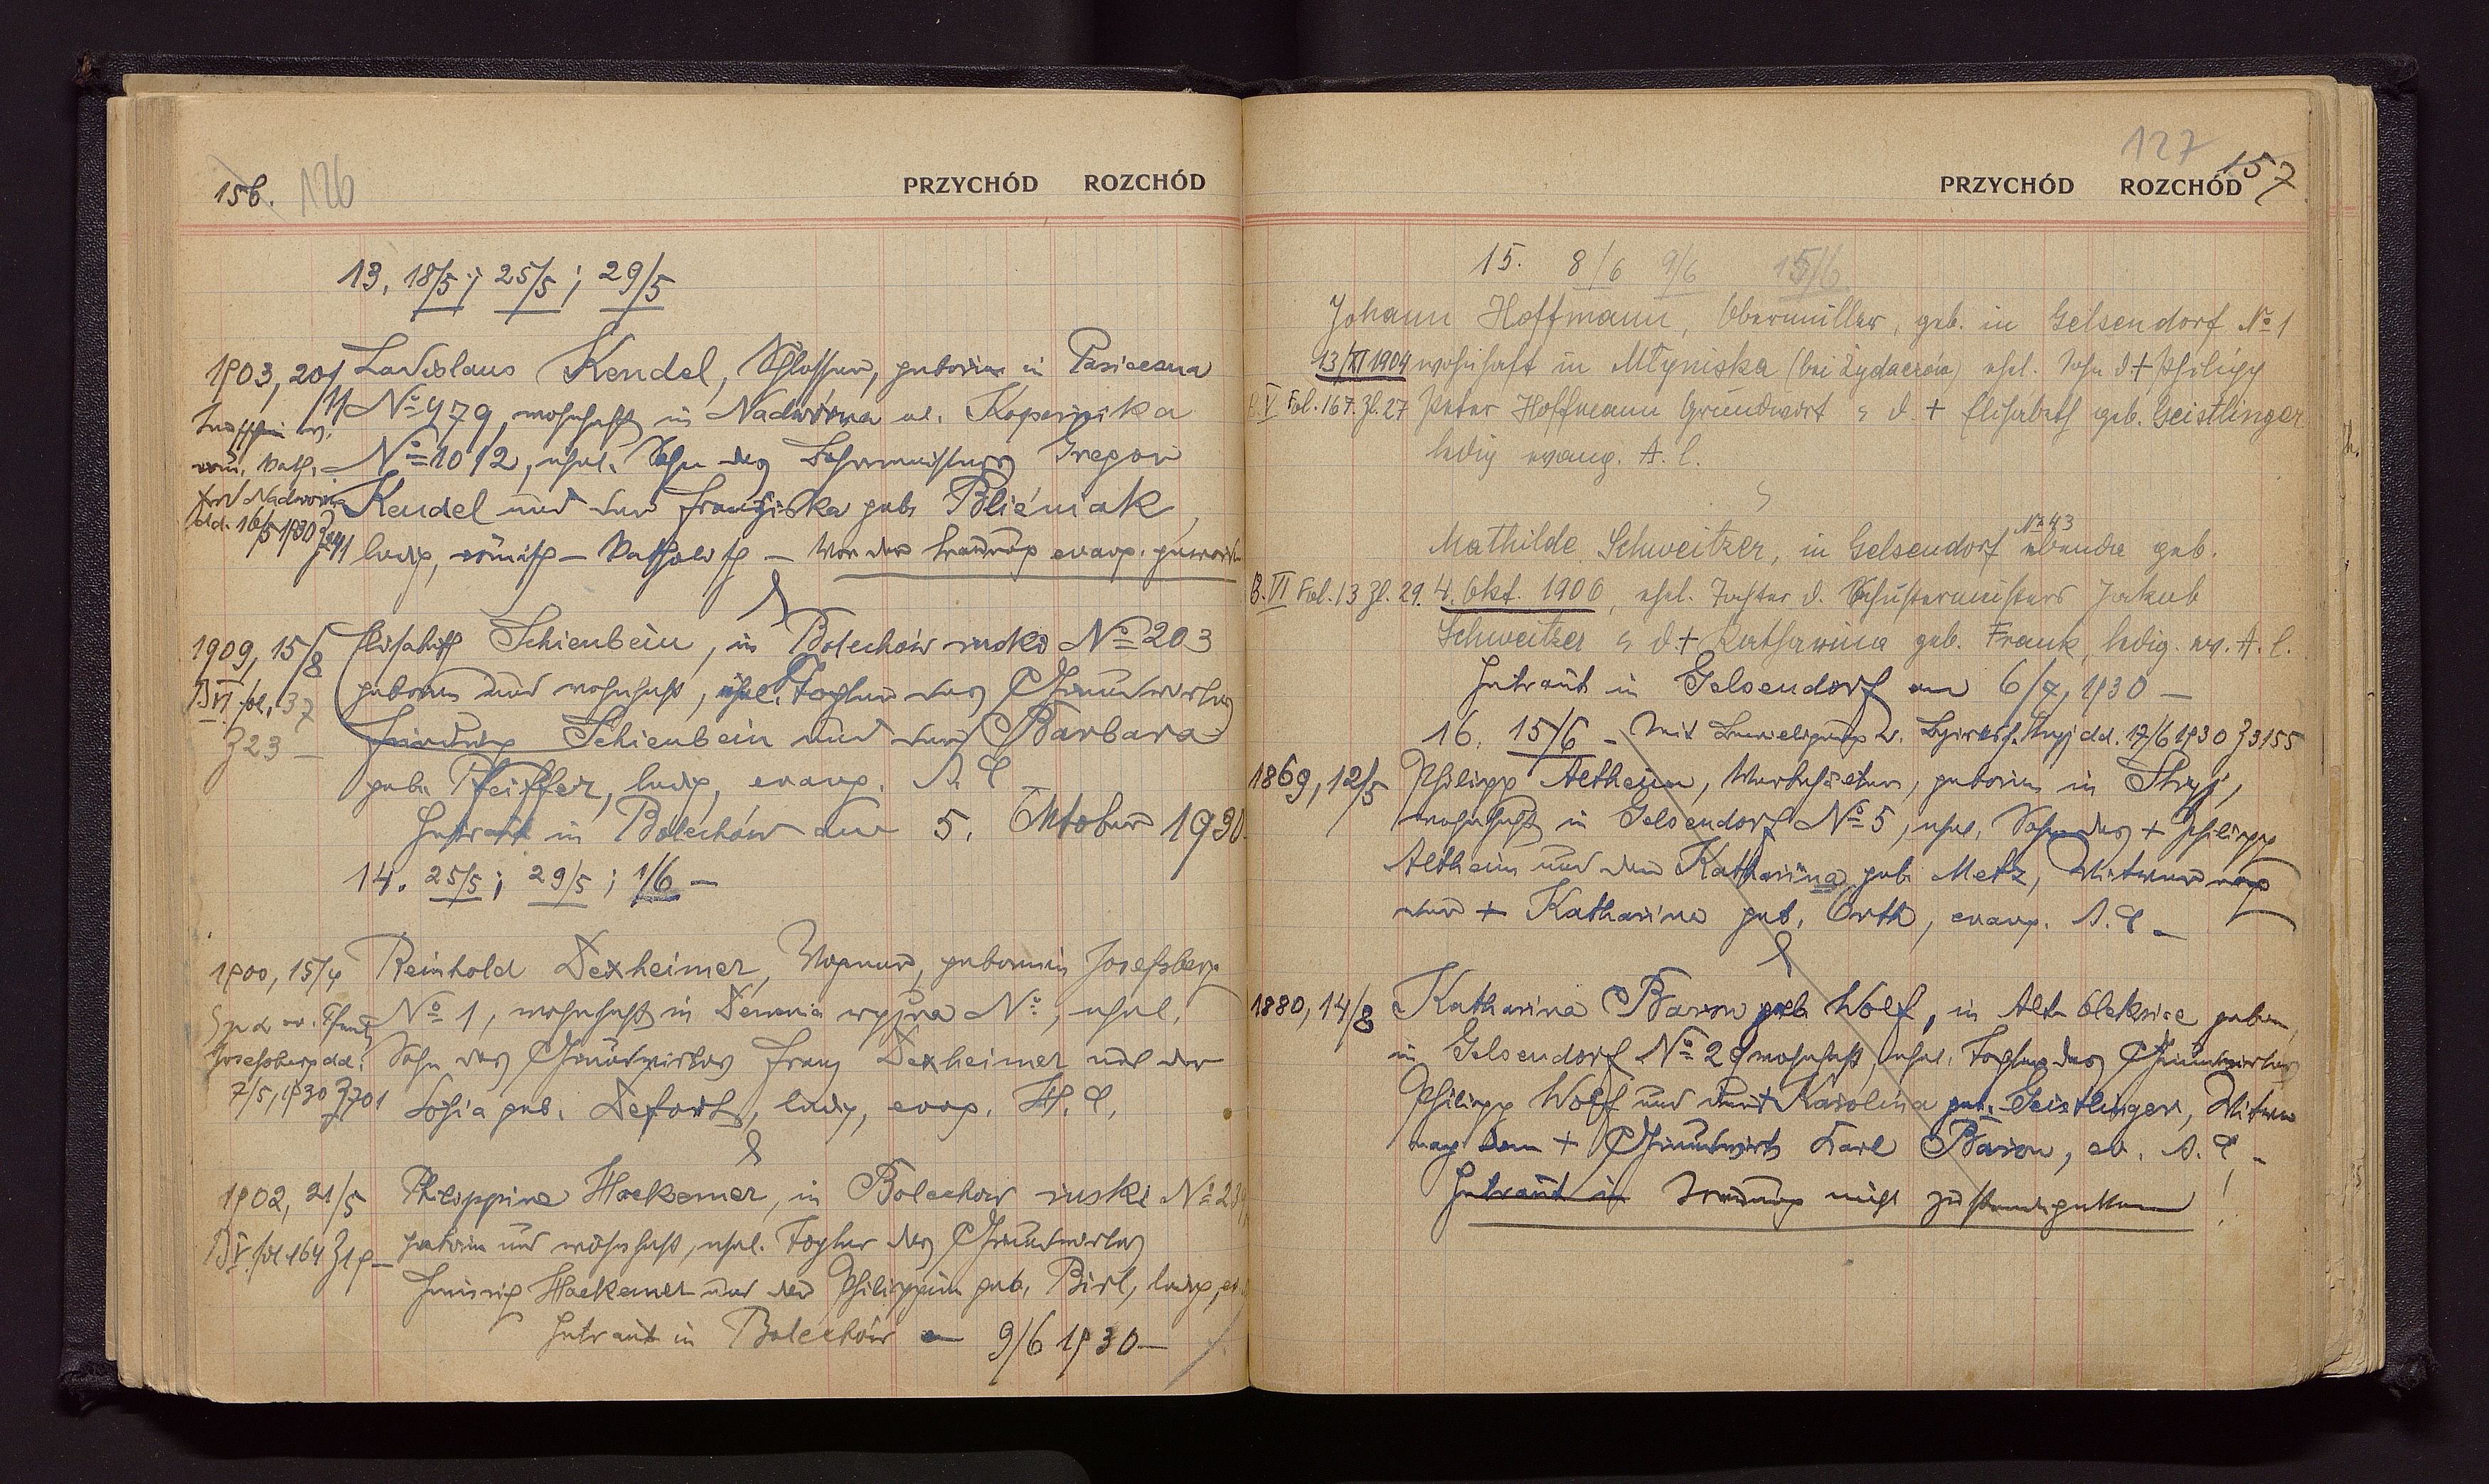 156. 126
PRZYCHÓD ROZCHÓD
13. 18/5; 25/5; 29/5
1903, 20/11 Ladislaus Kendel, Schlosser, geboren in Pasieczna
No 479, wohnhaft in Nadwórna ul. Kopernika
Tauffschein v.
röm. kath. No 1012, ehel. Sohn des Gregor
Pfd Nadworna Kendel und der Franziska geb.
dd. 16/5 1930 Z 241 ledig, römisch-katholisch - Vor der Trauung evang. geworden
&
1909, 15/8 Elisabeth Schienbein, in Bolechów ruski No 203
B VI fol. 37 geboren und wohnhaft, ehel. Tochter des Grundwirtes
Z 23 - Friedrich Schienbein und der Barbara
geb. Pfeiffer, ledig, evang. A. C.
Getraut in Bolechów am 5. Oktober 1930
14. 25/5; 29/5; 1/6 -
1900, 15/4 Reinhold Dexheimer, Wagner, geboren in Josefsberg
No 1, wohnhaft in Derenia wyżna No , ehel.
ev. Pfarre
Josefsberg dd. Sohn des Grundwirtes Franz Dexheimer und der
7/5, 1930 Z 701 Sofia geb. Defort, ledig, evang. H. C.
&
1902, 21/5 Philippine Hackemer, in Bolechów ruski No
B V. fol 164 Z 19 - geboren und wohnhaft, ehel. Tochter des Grundwirtes
Heinrich Hackemer und der Philippine geb. Birl, ledig, ev.
Getraut in Bolechów am 9/6 1930 -
127 157
PRZYCHÓD ROZCHÓD
15. 8/6 9/6 15/6
Johann Hoffmann, Obermüller, geb. in Gelsendorf No 1
13/XI 1904 wohnhaft in Młyniska (bei Żydaczów) ehel. Sohn d. + Philipp
B. V Fol. 167. Zl. 27 Peter Hoffmann Grundwirt & d. + Elisabeth geb. Geistlinger
ledig evang. A. C.
&
Mathilde Schweitzer, in Gelsendorf No 43 ebenda geb.
B. VI Fol. 13 Zl. 29. 4. Okt. 1906, ehel. Tochter d. Schustermeisters Jakob
Schweitzer & d. + Katharina geb. Frank, ledig. ev. A. C.
Getraut in Gelsendorf am 6/7, 1930 -
16. 15/6 - Mit Bewilligung d. Stryj dd. 17/6 1930 Z 3155
1869, 12/5 Philipp Altheim, Werksleiter, geboren in Stryj,
wohnhaft in Gelsendorf No 5, ehel. Sohn des + Philipp
Altheim und der Katharina geb. Metz, Witwer nach
der + Katharina geb. Orth, evang. A. C. -
&
1880, 14/8 Katharina Baron geb. Wolf, in Alt Oleksice geboren
in Gelsendorf No 29 wohnhaft, ehel. Tochter des Grundwirtes
Philipp Wolf und der + Karolina geb. Geistlinger, Witwe
nach dem + Grundwirt Karl Baron, ev. A. C. -
Getraut in Trauung nicht zu Stande gekommen!